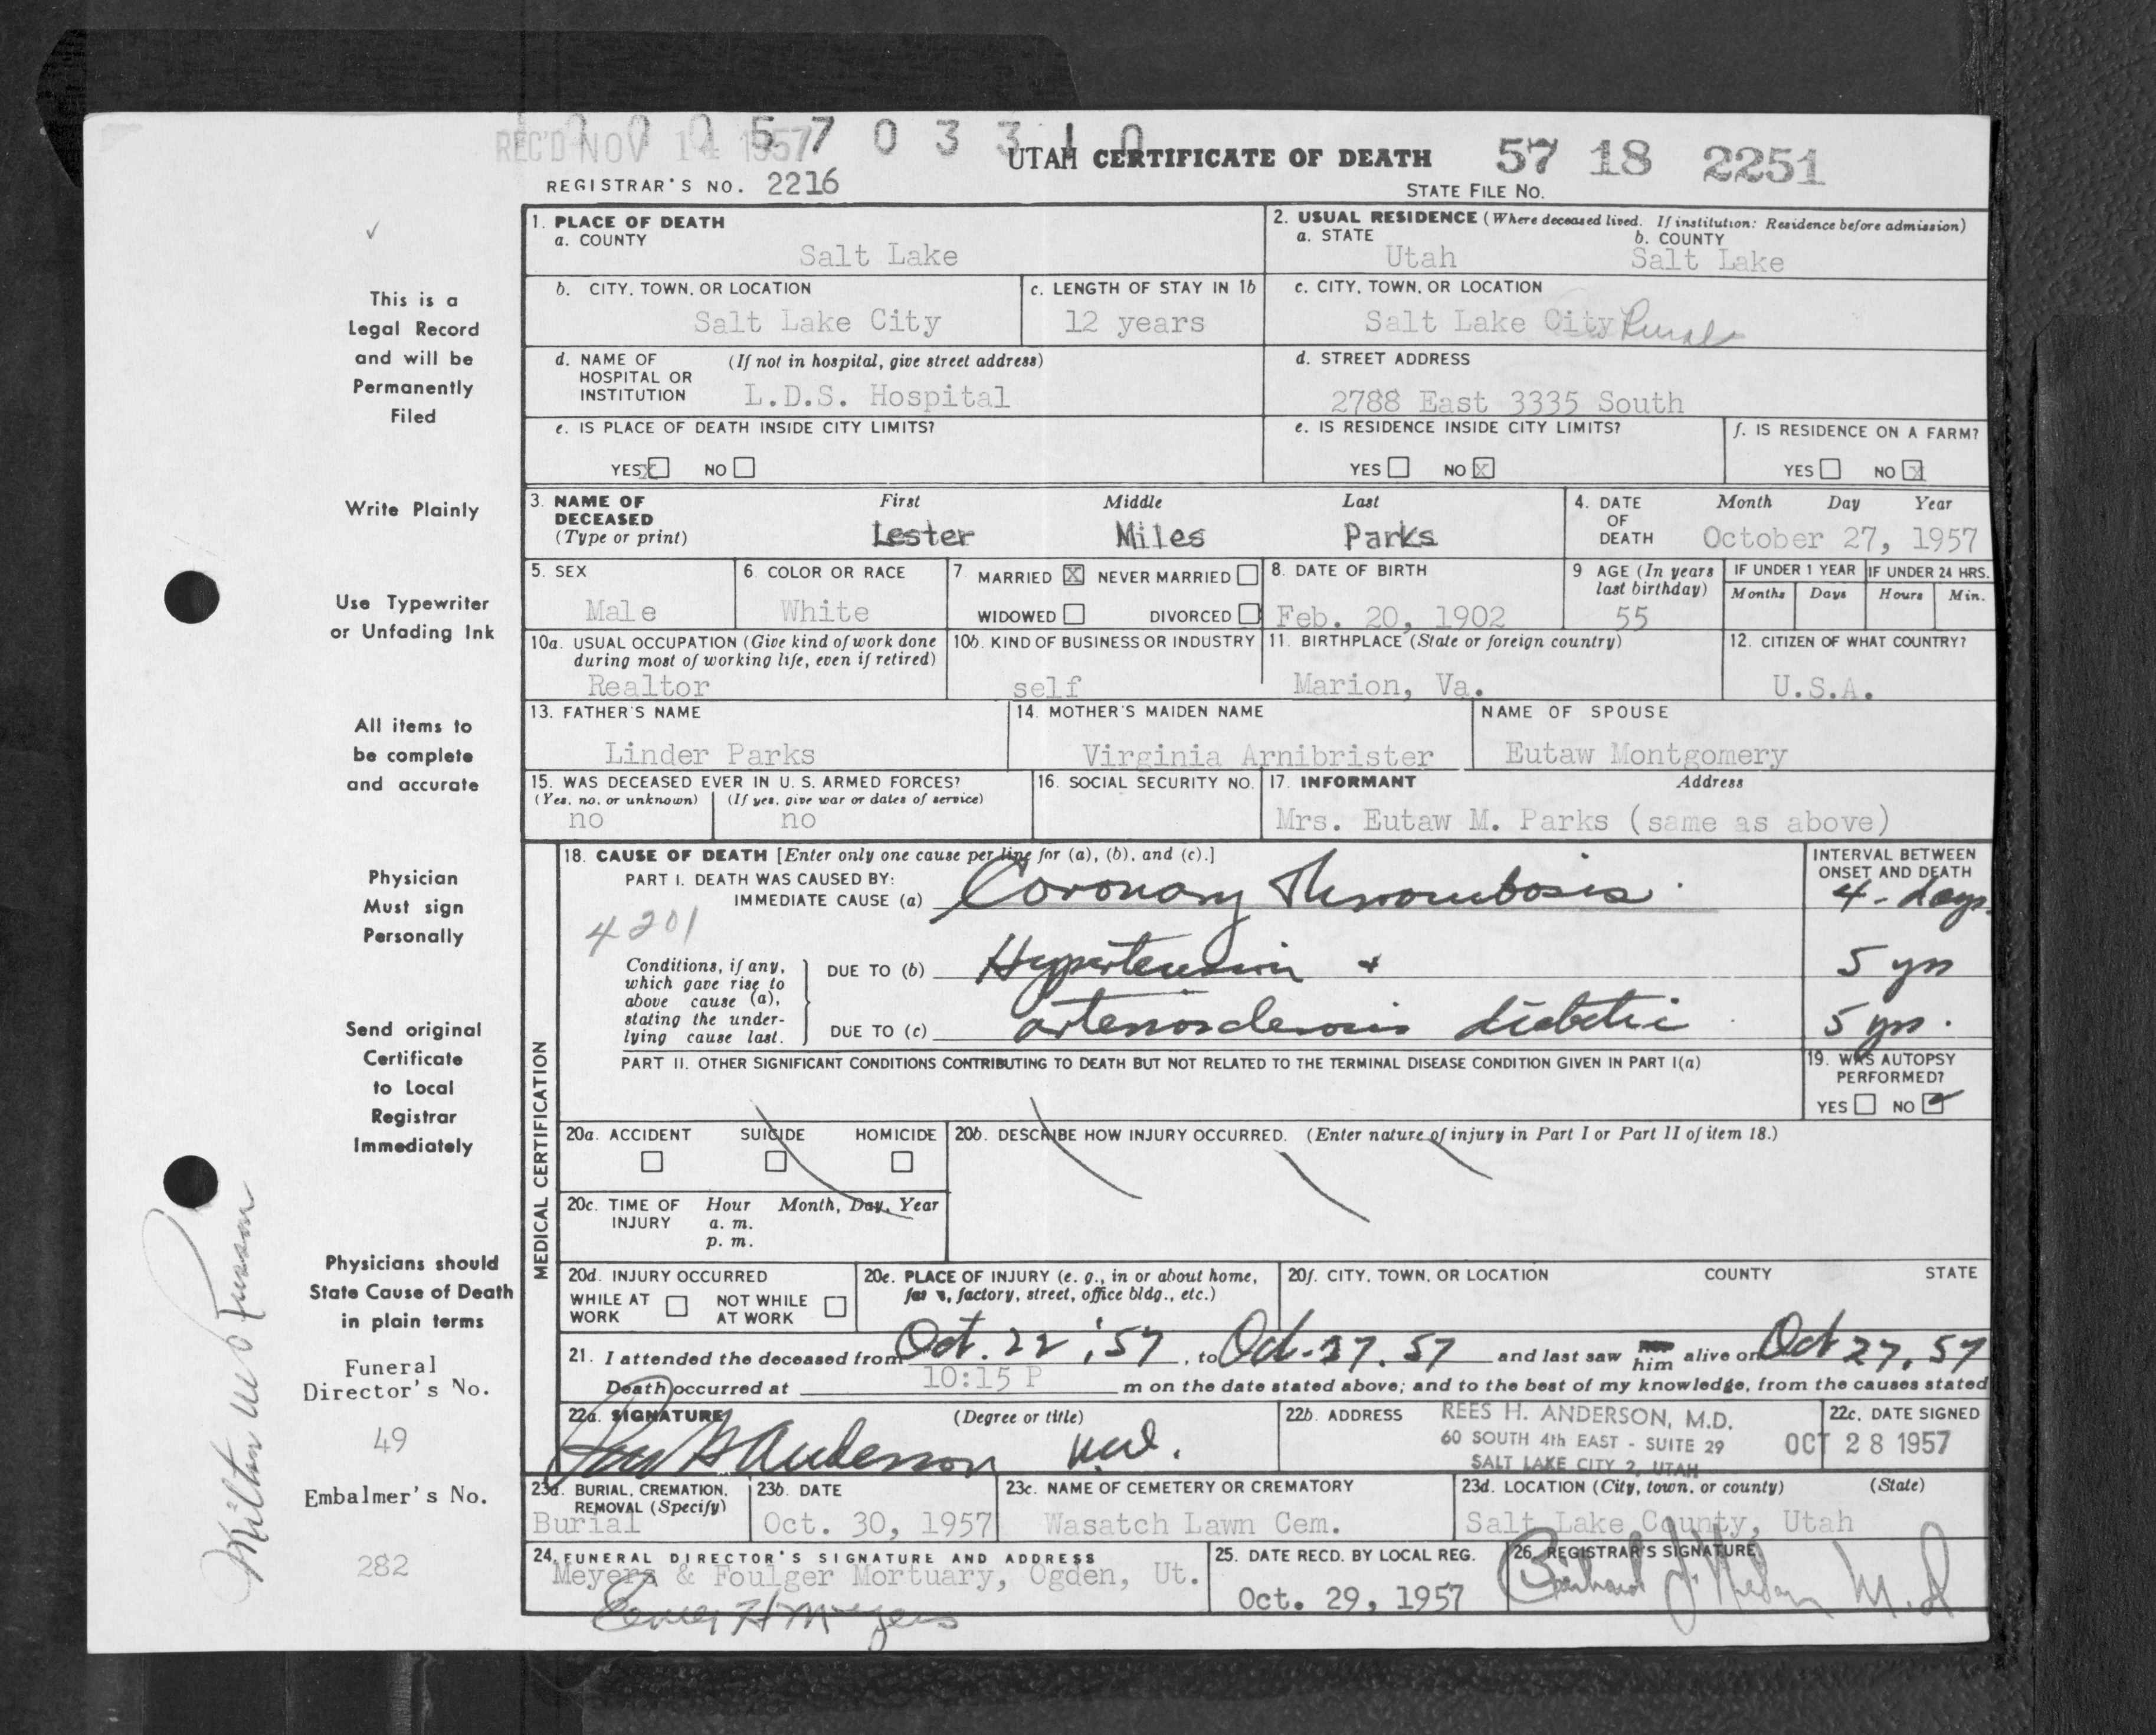 REC'D NOV 14 1957
5 7 0 3 3 1 0
UTAH CERTIFICATE OF DEATH
57 18 2251
REGISTRAR'S NO. 2216
STATE FILE NO.
1. PLACE OF DEATH
a. COUNTY
Salt Lake
2. USUAL RESIDENCE (Where deceased lived. If institution: Residence before admission)
a. STATE
b. COUNTY
Utah Salt Lake
b. CITY, TOWN, OR LOCATION
Salt Lake City
c. LENGTH OF STAY IN 1b
12 years
c. CITY, TOWN, OR LOCATION
Salt Lake City Rural
d. NAME OF HOSPITAL OR INSTITUTION
(If not in hospital, give street address)
L.D.S. Hospital
d. STREET ADDRESS
2788 East 3335 South
e. IS PLACE OF DEATH INSIDE CITY LIMITS?
YES X NO
e. IS RESIDENCE INSIDE CITY LIMITS?
YES NO X
f. IS RESIDENCE ON A FARM?
YES NO X
3. NAME OF DECEASED (Type or print)
First Middle Last
Lester Miles Parks
4. DATE OF DEATH
Month Day Year
October 27, 1957
5. SEX
Male
6. COLOR OR RACE
White
7. MARRIED X NEVER MARRIED
WIDOWED DIVORCED
8. DATE OF BIRTH
Feb. 20, 1902
9 AGE (In years last birthday)
55
IF UNDER 1 YEAR
Months Days
IF UNDER 24 HRS.
Hours Min.
10a. USUAL OCCUPATION (Give kind of work done during most of working life, even if retired)
Realtor
10b. KIND OF BUSINESS OR INDUSTRY
self
11. BIRTHPLACE (State or foreign country)
Marion, Va.
12. CITIZEN OF WHAT COUNTRY?
U.S.A.
13. FATHER'S NAME
Linder Parks
14. MOTHER'S MAIDEN NAME
Virginia Arnibrister
NAME OF SPOUSE
Eutaw Montgomery
15. WAS DECEASED EVER IN U. S. ARMED FORCES?
(Yes, no, or unknown) (If yes, give war or dates of service)
no no
16. SOCIAL SECURITY NO.
17. INFORMANT Address
Mrs. Eutaw M. Parks (same as above)
MEDICAL CERTIFICATION
18. CAUSE OF DEATH [Enter only one cause per line for (a), (b), and (c).]
PART I. DEATH WAS CAUSED BY:
IMMEDIATE CAUSE (a) Coronary Thrombosis
4201
INTERVAL BETWEEN ONSET AND DEATH
4 - days
Conditions, if any, which gave rise to above cause (a), stating the underlying cause last.
DUE TO (b) Hypertension +
5 yrs
DUE TO (c) arteriosclerosis diabetic
5 yrs.
PART II. OTHER SIGNIFICANT CONDITIONS CONTRIBUTING TO DEATH BUT NOT RELATED TO THE TERMINAL DISEASE CONDITION GIVEN IN PART I(a)
19. WAS AUTOPSY PERFORMED?
YES NO
20a. ACCIDENT SUICIDE HOMICIDE
20b. DESCRIBE HOW INJURY OCCURRED. (Enter nature of injury in Part I or Part II of item 18.)
20c. TIME OF INJURY
Hour Month, Day, Year
a. m.
p. m.
20d. INJURY OCCURRED
WHILE AT WORK NOT WHILE AT WORK
20e. PLACE OF INJURY (e. g., in or about home, farm, factory, street, office bldg., etc.)
20f. CITY, TOWN, OR LOCATION COUNTY STATE
21. I attended the deceased from Oct. 22, '57, to Oct. 27. 57 and last saw him alive on Oct 27, 57
Death occurred at 10:15 P m on the date stated above; and to the best of my knowledge, from the causes stated
22a. SIGNATURE (Degree or title)
Rees H Anderson M.D.
22b. ADDRESS
REES H. ANDERSON, M.D.
60 SOUTH 4th EAST - SUITE 29
SALT LAKE CITY 2, UTAH
22c. DATE SIGNED
OCT 28 1957
23a. BURIAL, CREMATION, REMOVAL (Specify)
Burial
23b. DATE
Oct. 30, 1957
23c. NAME OF CEMETERY OR CREMATORY
Wasatch Lawn Cem.
23d. LOCATION (City, town, or county) (State)
Salt Lake County, Utah
24. FUNERAL DIRECTOR'S SIGNATURE AND ADDRESS
Meyers & Foulger Mortuary, Ogden, Ut.
H Meyers
25. DATE RECD. BY LOCAL REG.
Oct. 29, 1957
26. REGISTRAR'S SIGNATURE
M.D
This is a
Legal Record
and will be
Permanently
Filed
Write Plainly
Use Typewriter
or Unfading Ink
All items to
be complete
and accurate
Physician
Must sign
Personally
Send original
Certificate
to Local
Registrar
Immediately
Physicians should
State Cause of Death
in plain terms
Funeral
Director's No.
49
Embalmer's No.
282
Milton